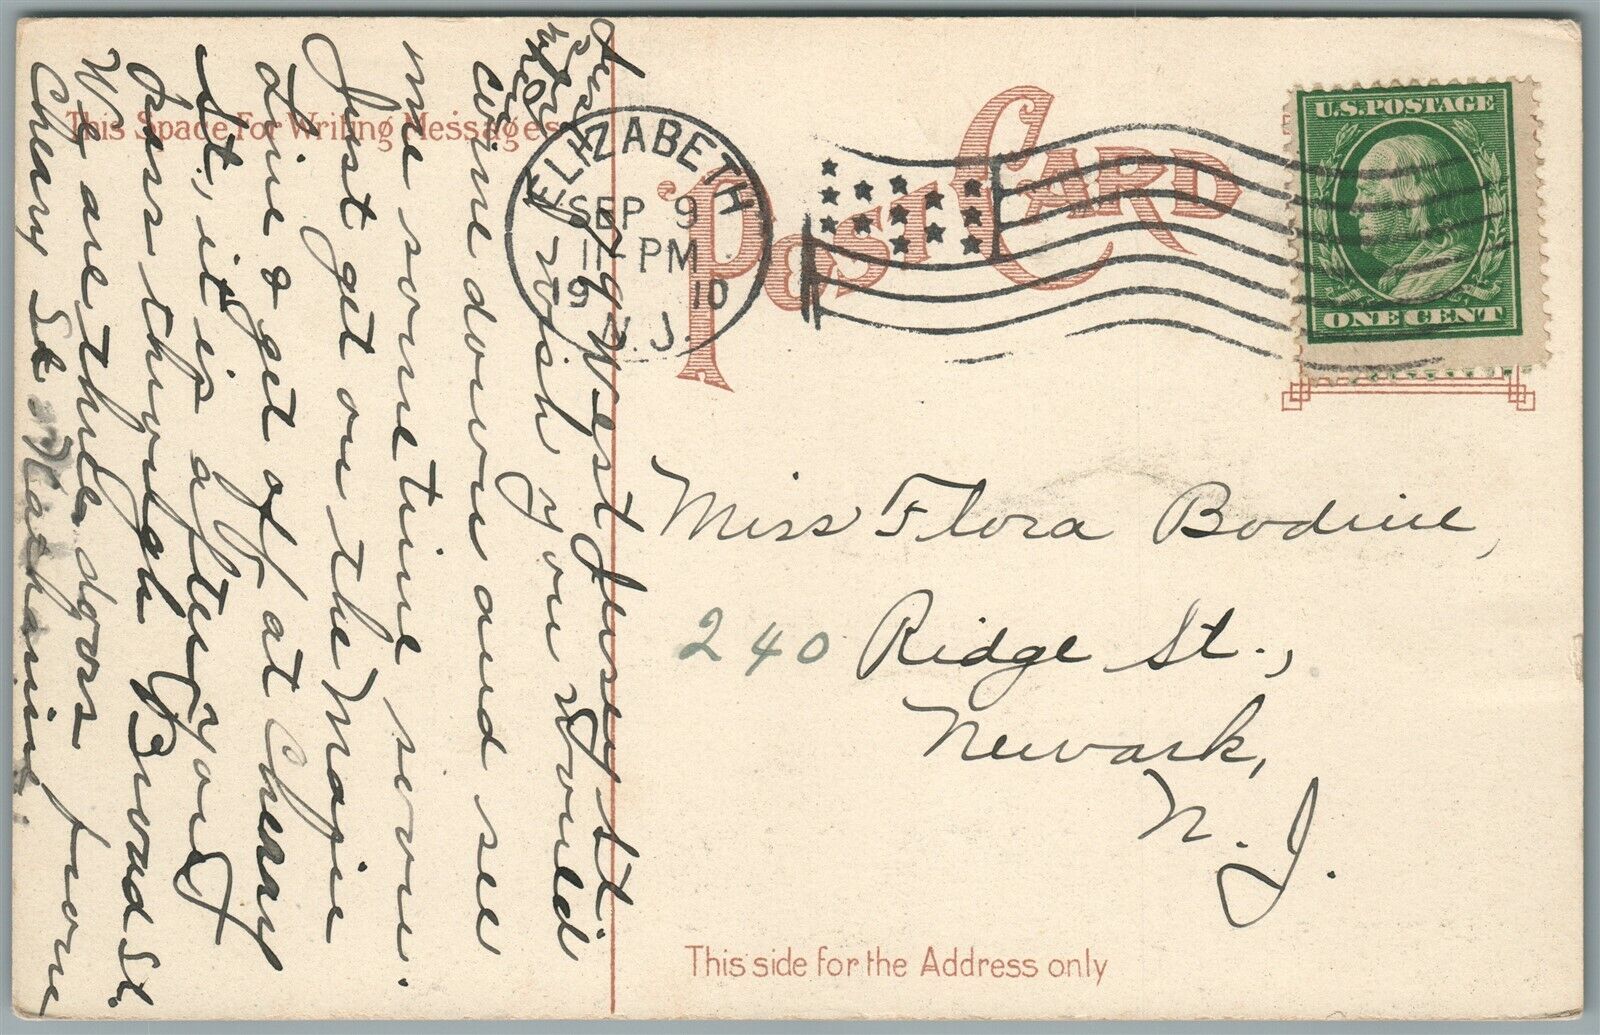 This Space For Writing Messages
POST CARD
ELIZABETH
SEP 9
11-PM
1910
N.J.
U.S. POSTAGE
ONE CENT
Miss Flora Bodine,
240 Ridge St.,
Newark,
N. J.
This side for the Address only
West Jersey St.
I wish you would
come down and see
me some time soon.
Just get on the Main
Line & get off at Cherry
St., it is after you
pass through Broad St.
We are three doors from
Cherry St.